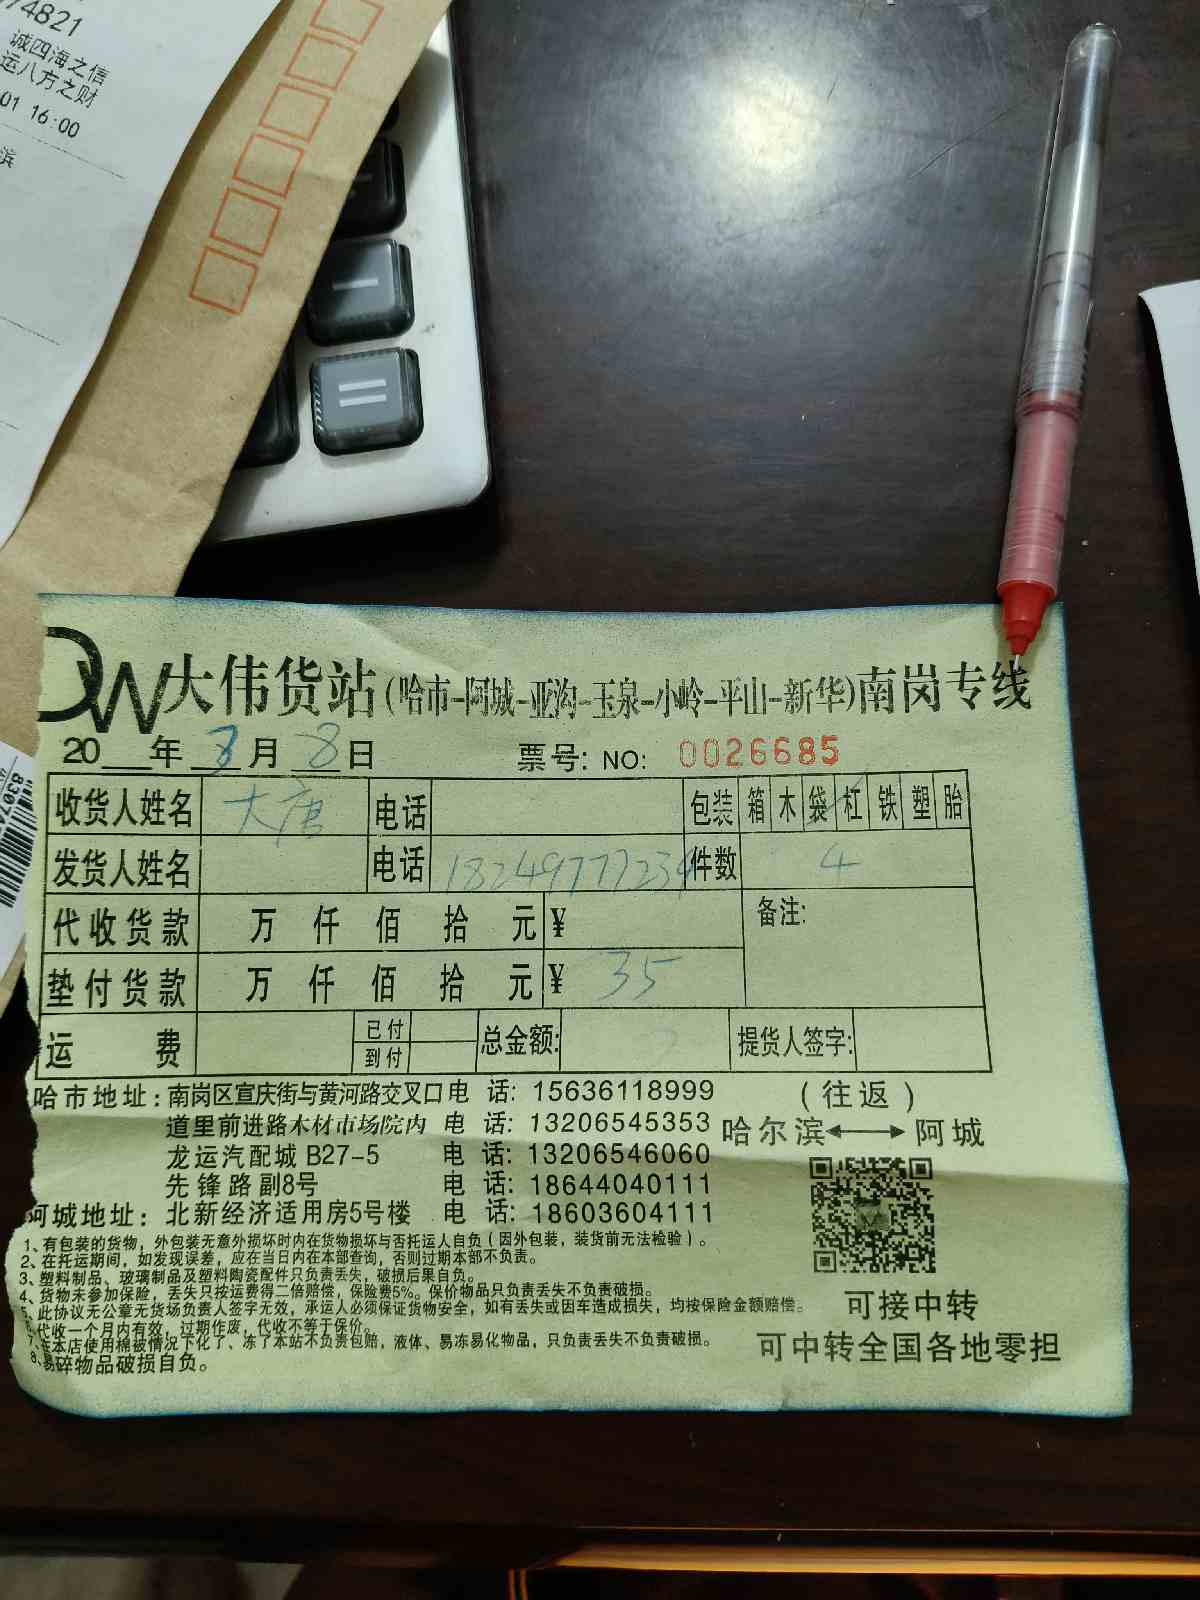 74821
诚四海之信
运八方之财
01 16:00
滨
8307
DW大伟货站(哈市-阿城-亚沟-玉泉-小岭-平山-新华)南岗专线
20__年 3月 8日 票号: NO: 0026685
收货人姓名 大唐 电话 包装 箱 木 袋 杠 铁 塑 胎
发货人姓名 电话 18249777234 件数 4
代收货款 万 仟 佰 拾 元 ¥ 备注:
垫付货款 万 仟 佰 拾 元 ¥ 35
运费 已付 到付 总金额: 提货人签字:
哈市地址: 南岗区宣庆街与黄河路交叉口 电话: 15636118999 (往返)
道里前进路木材市场院内 电话: 13206545353 哈尔滨↔阿城
龙运汽配城 B27-5 电话: 13206546060
先锋路副8号 电话: 18644040111
阿城地址: 北新经济适用房5号楼 电话: 18603604111
1、有包装的货物，外包装无意外损坏时内在货物损坏与否托运人自负（因外包装，装货前无法检验）。
2、在托运期间，如发现误差，应在当日内在本部查询，否则过期本部不负责。
3、塑料制品、玻璃制品及塑料陶瓷配件只负责丢失，破损后果自负。
4、货物未参加保险，丢失只按运费得二倍赔偿，保险费5%。保价物品只负责丢失不负责破损。
5、此协议无公章无货场负责人签字无效，承运人必须保证货物安全，如有丢失或因车造成损失，均按保险金额赔偿。
6、代收一个月内有效，过期作废，代收不等于保价。
7、在本店使用棉被情况下化了、冻了本站不负责包赔，液体、易冻易化物品，只负责丢失不负责破损。
8、易碎物品破损自负。
可接中转
可中转全国各地零担